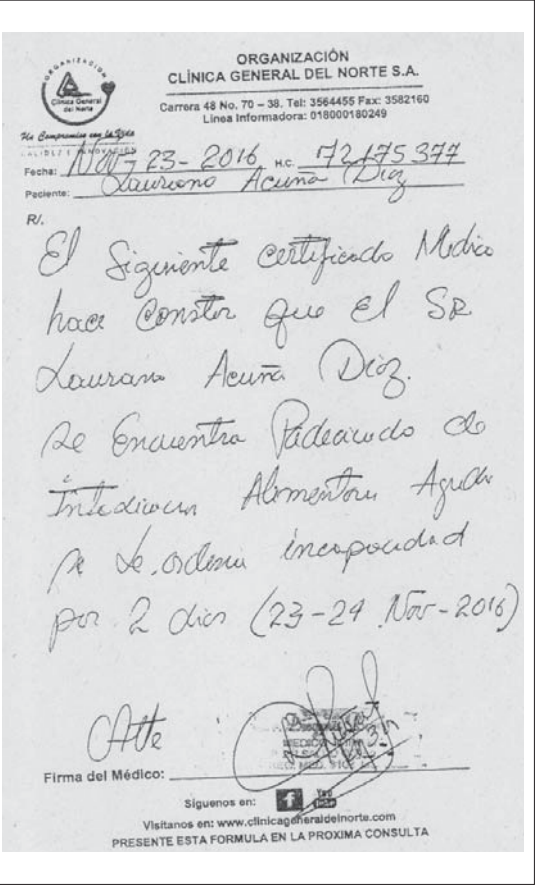 ORGANIZACIÓN
Clínica General
del Norte
Un Compromiso con la Vida
CALIDEZ E INNOVACIÓN
ORGANIZACIÓN
CLÍNICA GENERAL DEL NORTE S.A.
Carrera 48 No. 70 – 38. Tel: 3564455 Fax: 3582160
Linea Informadora: 018000180249
Fecha: Nov - 23 - 2016 H.C. 72175377
Paciente: Lauriano Acuña Diaz
R/.
El Siguiente certificado Medico
hace Constar que el SR
Laurano Acuña Diaz.
se Encuentra Padeciendo de
Alimentaria Aguda
se Le ordena incapacidad
por 2 dias (23-24 Nov-2016)
Atte
Firma del Médico:
MEDICO
Siguenos en: f You
Visítanos en: www.clinicageneraldelnorte.com
PRESENTE ESTA FORMULA EN LA PROXIMA CONSULTA